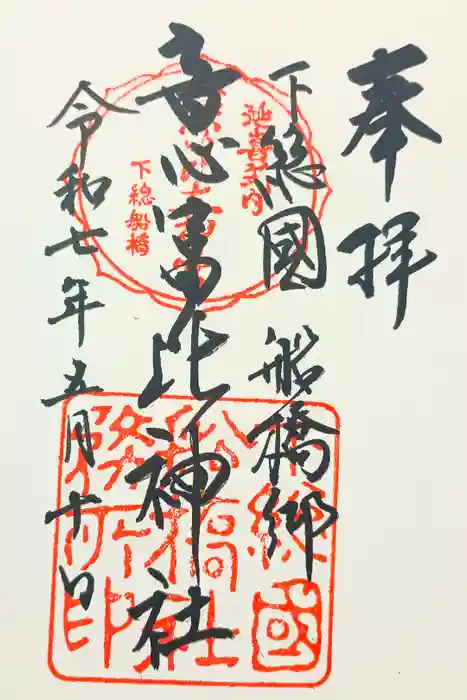 奉拝
下総國 船橋郷
意富比神社
令和七年五月十日
延喜式内
下総船橋